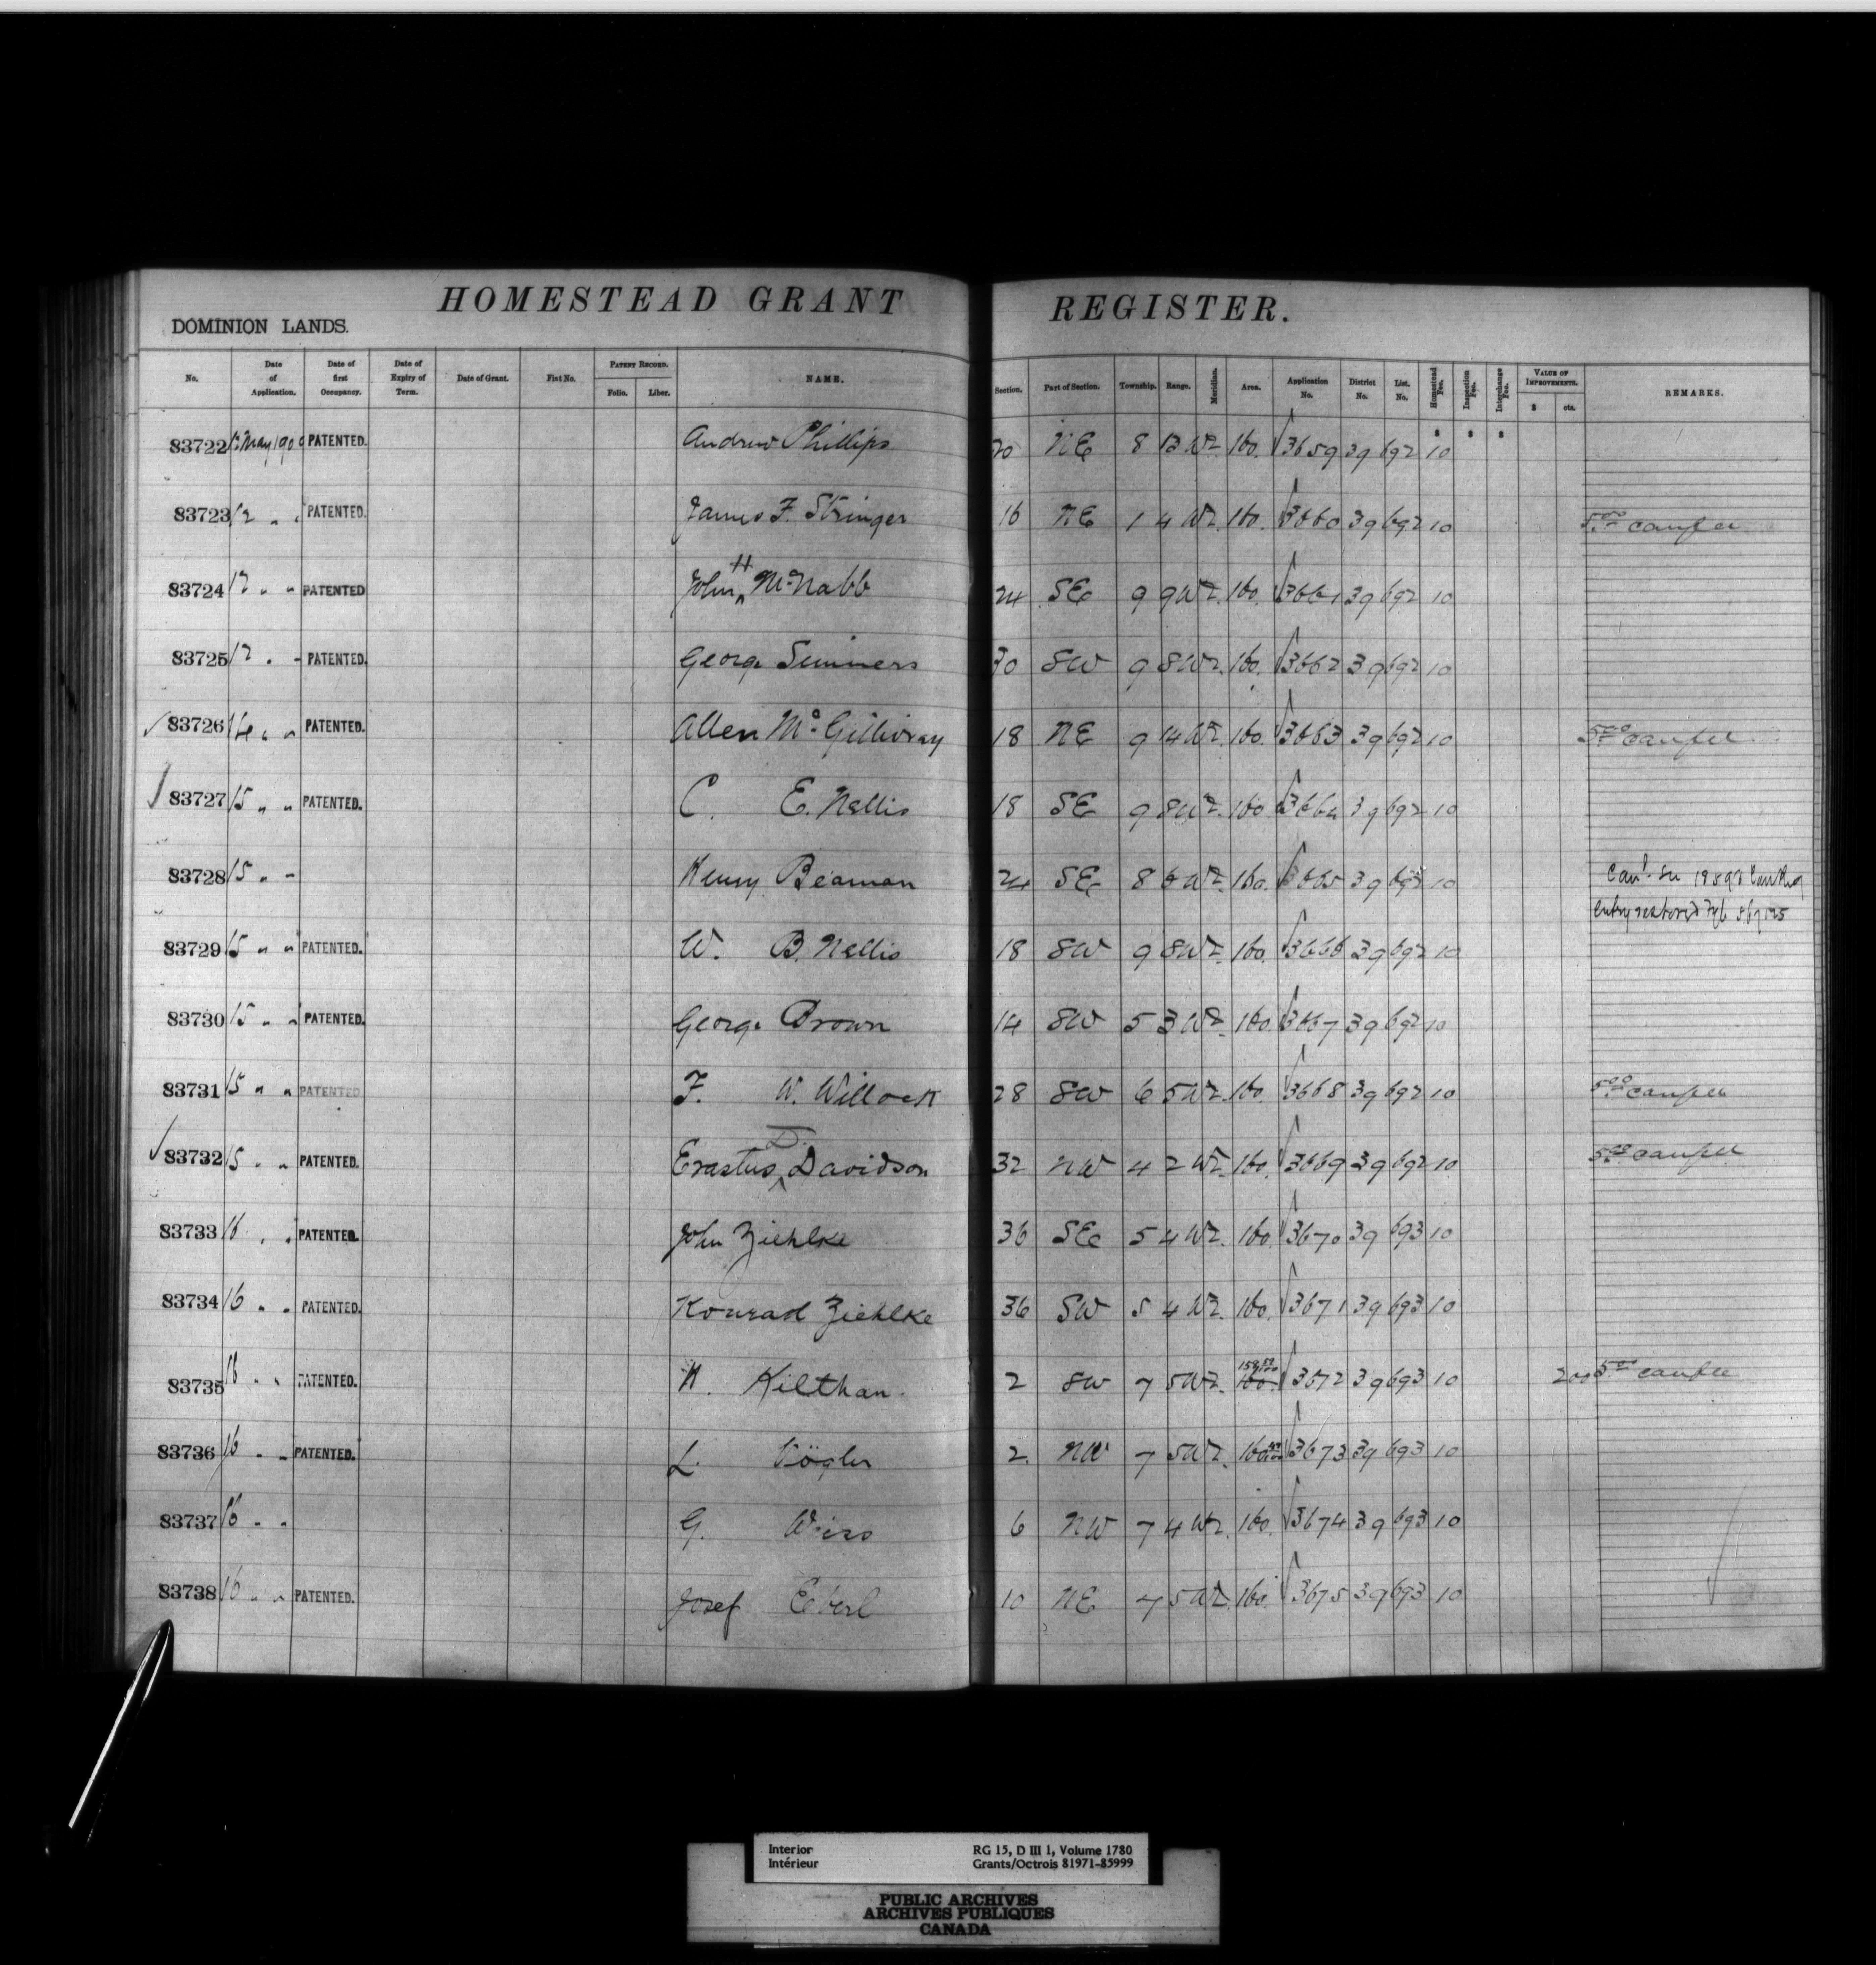 HOMESTEAD GRANT REGISTER.
DOMINION LANDS.
No. Date of Application. Date of first Occupancy. Date of Expiry of Term. Date of Grant. Fiat No. PATENT RECORD. Folio. Liber. NAME. Section. Part of Section. Township. Range. Meridian. Area. Application No. District No. List. No. Homestead Fee. Inspection Fee. Interchange Fee. VALUE OF IMPROVEMENTS. $ cts. REMARKS.
83722 12 May 1900 PATENTED. Andrew Phillips 20 NE 8 13 W2 160. 3659 39 692 10
83723 12 " " PATENTED. James F. Stringer 16 NE 1 4 W2. 160. 3660 39 692 10 5.00 canfee
83724 12 " " PATENTED John H McNabb 24 SE 9 9 W2. 160. 3661 39 692 10
83725 12 " " PATENTED. George Simmers 30 SW 9 8 W2. 160. 3662 39 692 10
83726 14 " " PATENTED. Allen McGillivray 18 NE 9 14 W2. 160. 3663 39 692 10 5.00 canfee
83727 15 " " PATENTED. C. E. Nellis 18 SE 9 8 W2. 160 3664 39 692 10
83728 15 " " Henry Beaman 24 SE 8 6 W2. 160. 3665 39 692 10 Can'd
entry restored
83729 15 " " PATENTED. W. B. Nellis 18 SW 9 8 W2 160. 3666 39 692 10
83730 15 " " PATENTED. George Brown 14 SW 5 3 W2. 160. 3667 39 692 10
83731 15 " " PATENTED F. W. Willock 28 SW 6 5 W2. 160. 3668 39 692 10 5.00 canfee
83732 15 " " PATENTED. Erastus D. Davidson 32 NW 4 2 W2. 160 3669 39 692 10 5.00 canfee
83733 16 " " PATENTED. John Ziehlke 36 SE 5 4 W2. 160. 3670 39 693 10
83734 16 " " PATENTED. Konrad Ziehlke 36 SW 5 4 W2. 160. 3671 39 693 10
83735 16 " " PATENTED. K. Kilthan. 2 SW 7 5 W2. 160. 3672 39 693 10 200 5.00 canfee
83736 16 " " PATENTED. L. Vögler 2. NW 7 5 W2. 160 3673 39 693 10
83737 16 " " G. Weiss 6 NW 7 4 W2. 160. 3674 39 693 10
83738 16 " " PATENTED. Josef Eberl 10 NE 7 5 W2. 160. 3675 39 693 10
Interior RG 15, D III 1, Volume 1780
Intérieur Grants/Octrois 81971-85999
PUBLIC ARCHIVES
ARCHIVES PUBLIQUES
CANADA